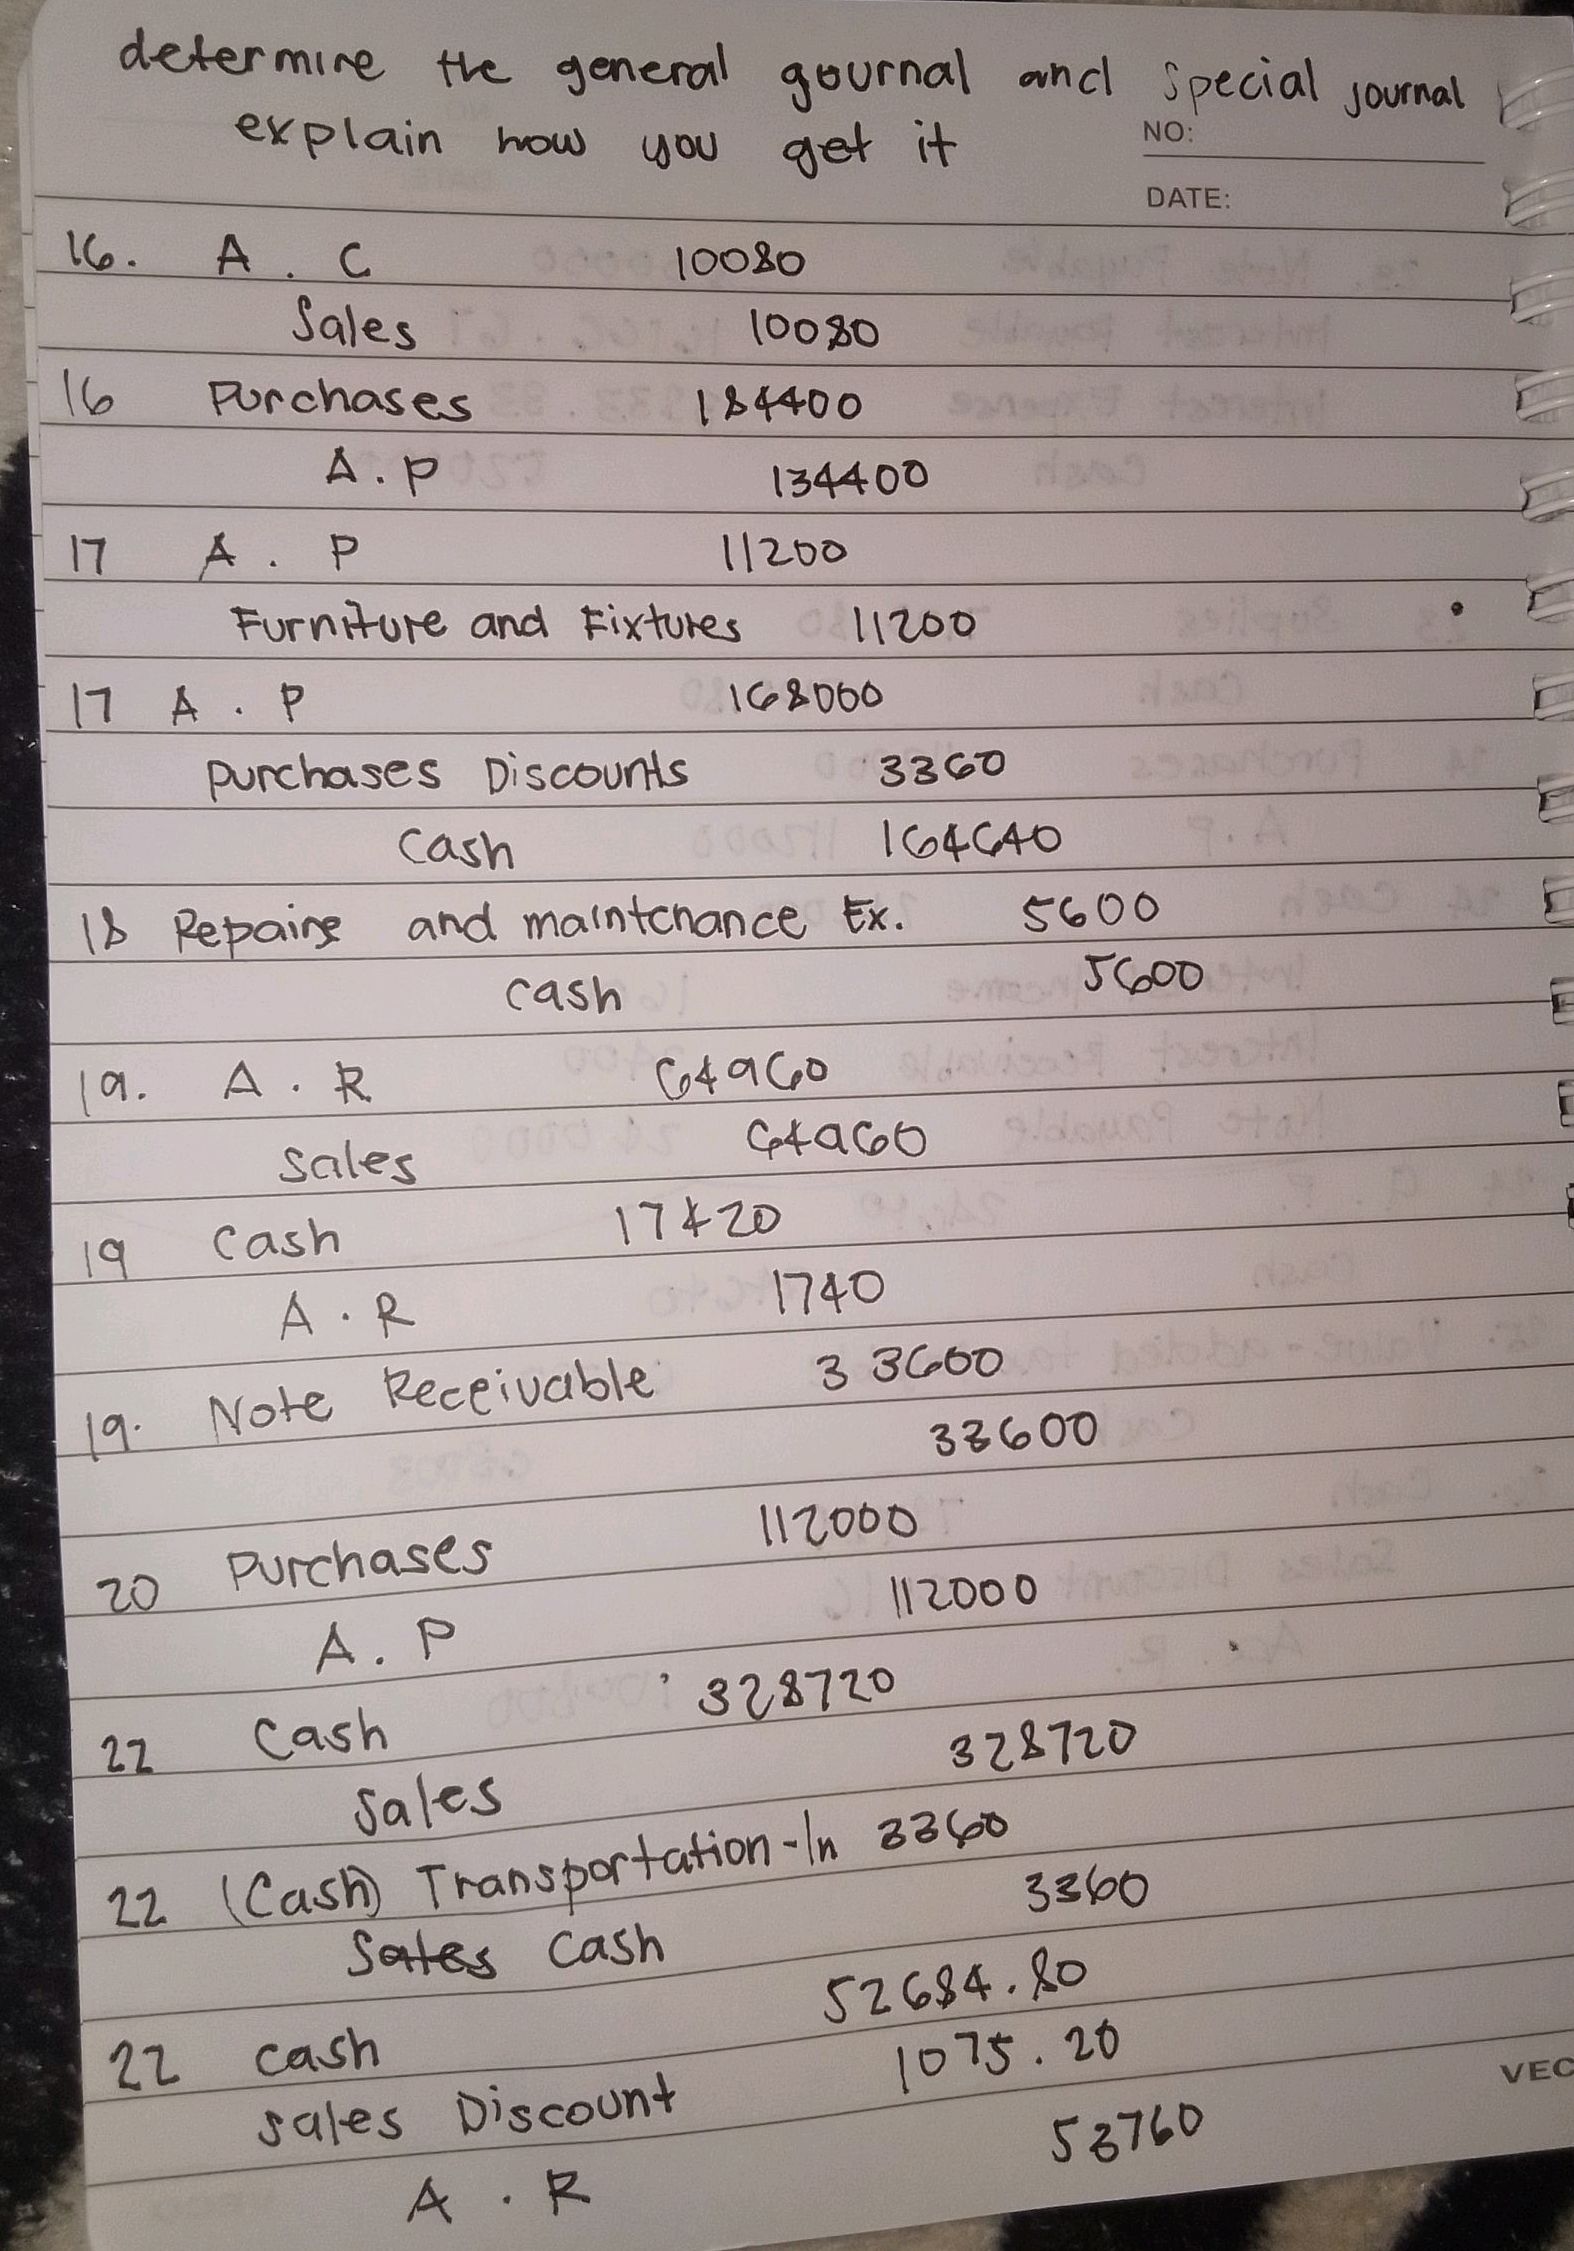 determine the general gournal and special journal
explain how you get it
NO:
DATE:
16. A . C 10080
Sales 10080
16 Purchases 134400
A . P 134400
17 A . P 11200
Furniture and Fixtures 11200
17 A . P 168000
purchases Discounts 3360
Cash 164640
18 Repairs and maintenance Ex. 5600
cash 5600
19. A . R 64960
Sales 64960
19 Cash 17420
A . R 1740
19. Note Receivable 33600
33600
20 Purchases 112000
A . P 112000
22 Cash 328720
Sales 328720
22 (Cash) Transportation-In 3360
Sales Cash 3360
22 cash 52684.80
sales Discount 1075.20
A . R 53760
VEC